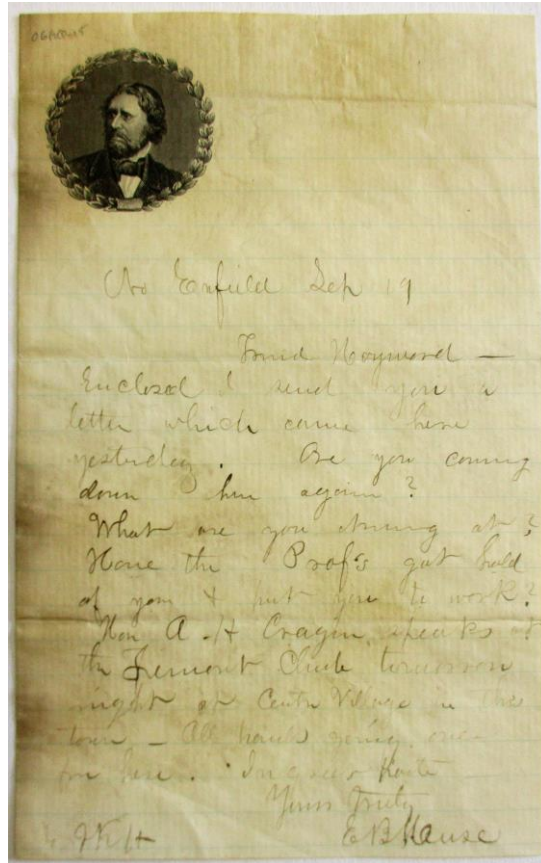 No Enfield Sep 19
Friend Hayward —
Enclosed I send you a
letter which came here
yesterday. Are you coming
down here again?
What are you at?
Have the Profs got hold
of you & put you to work?
Hon A. H Cragin, speaks at
the Fremont Club tomorrow
night at Centre Village in this
town — All hands going over
from here. In great haste
Yours Truly
E B